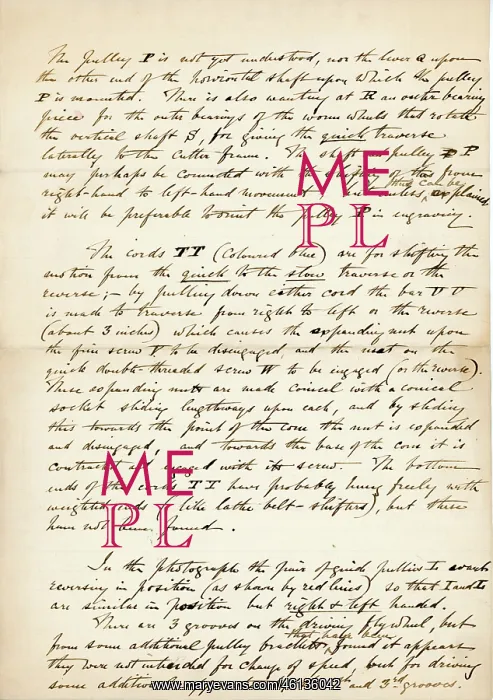 The pulley P is not yet understood, nor the lever Q upon
the other end of the horizontal shaft upon which the pulley
P is mounted. There is also wanting at R an outer bearing
piece for the outer bearings of the worm wheels that rotate
the vertical shaft S, for giving the quick traverse
laterally to the cutter frame. The shaft pulley P
may perhaps be connected with of this from
right-hand to left-hand movement explained
it will be preferable to omit the pulley P in engraving.
The cords TT (coloured blue) are for shifting the
motion from the quick to the slow traverse or the
reverse; - by pulling down either cord the bar U U
is made to traverse from right to left or the reverse
(about 3 inches) which causes the expanding nut upon
the fine screw V to be disengaged, and the nut on the
quick double-threaded screw W to be engaged (or the reverse).
These expanding nuts are made conical with a conical
socket sliding lengthways upon each, and by sliding
this towards the point of the cone the nut is expanded
and disengaged, and towards the base of the cone it is
contracted and with its screw. The bottom
ends of the cords TT have probably hung freely with
weighted ends (like lathe belt-shifters), but these
have not been found.
In the photographs the pair of guide pullies I wants
reversing in position (as shewn by red lines) so that I and I
are similar in position but right & left handed.
There are 3 grooves on the driving flywheel, but
from some additional pulley brackets that have been found it appears
they were not intended for change of speed, but for driving
some additional and 3rd grooves.
ME
PL
ME
PL
www.maryevans.com/46136042